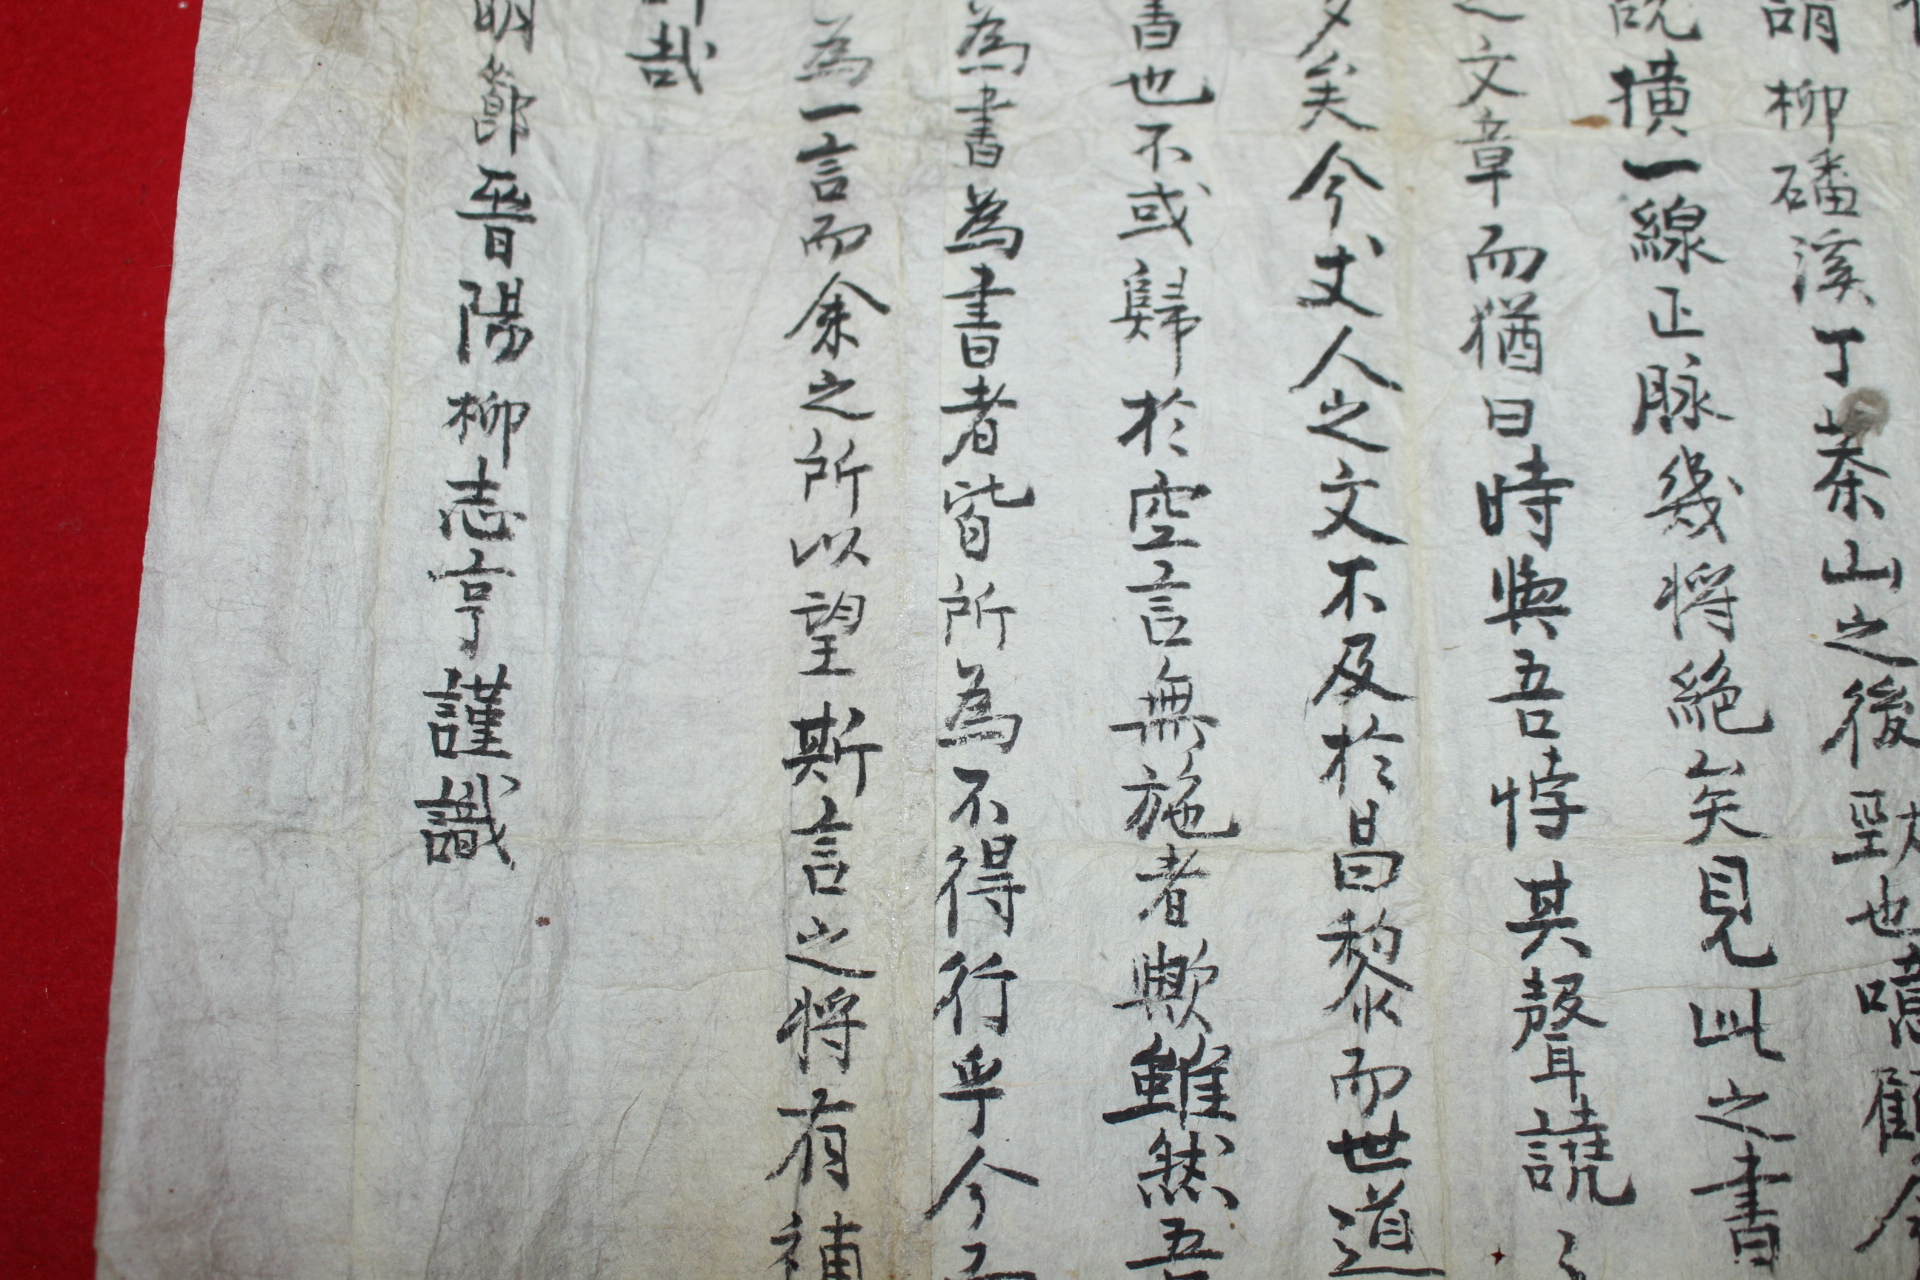 謂柳磻溪丁茶山之後勁也噫顧今
說橫一線正脉幾將絕矣見此之書
之文章而猶曰時與吾悖其聲譊〻
多矣今丈人之文不及於昌黎而世道
書也不或歸於空言無施者歟雖然吾
為書為書者皆所為不得行乎今而
為一言而余之所以望斯言之將有補
哉
明節晉陽柳志亨謹識